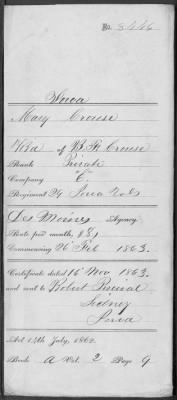 No. 8446
Iowa
Mary Crouse
Wid of B. F. Crouse
Rank Private
Company "C"
Regiment 29 Iowa Vols
Des Moines Agency
Rate per month, $8
Commencing 26 Feb 1863
Certificate dated 16 Nov 1863
and sent to Robert Percival
Sidney
Iowa
Act 14th July, 1862.
Book A Vol. 2 Page 9